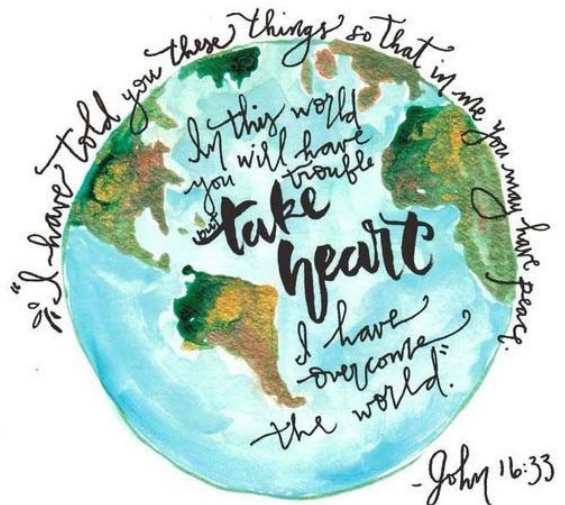 "I have told you these things so that in me you may have peace.
In this world
you will have
trouble
but take
heart
I have
overcome
the world."
- John 16:33